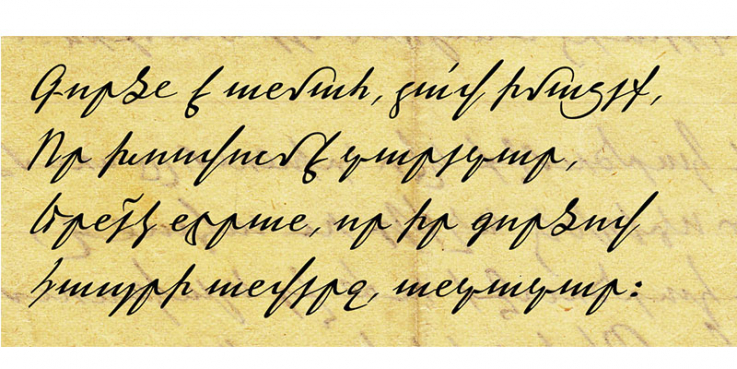 Գործն է անմահ, լա՛վ իմացեք,
Որ խոսվում է դարեդար,
Երնե՜կ նրան, որ իր գործով
Կապրի անվերջ, անդադար: